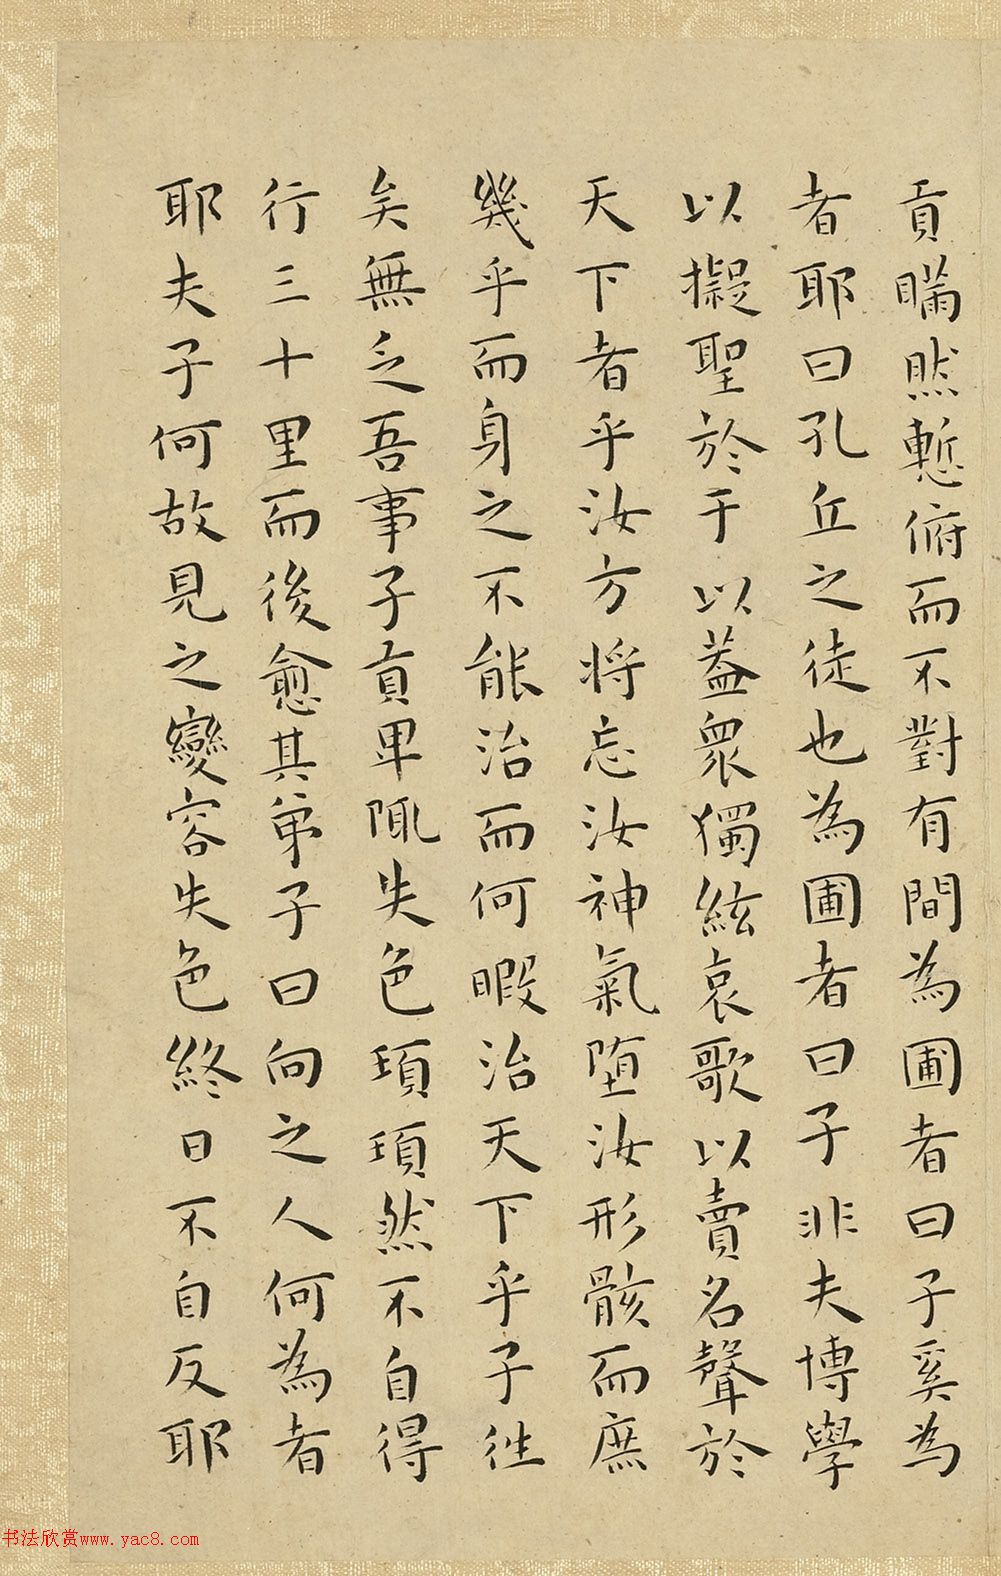 貢瞞然慙俯而不對有間為圃者曰子奚為
者耶曰孔丘之徒也為圃者曰子非夫博學
以擬聖於于以蓋衆獨絃哀歌以賣名聲於
天下者乎汝方將忘汝神氣墮汝形骸而庶
幾乎而身之不能治而何暇治天下乎子徃
矣無乏吾事子貢卑陬失色頊頊然不自得
行三十里而後愈其弟子曰向之人何為者
耶夫子何故見之變容失色終日不自反耶
书法欣赏www.yac8.com